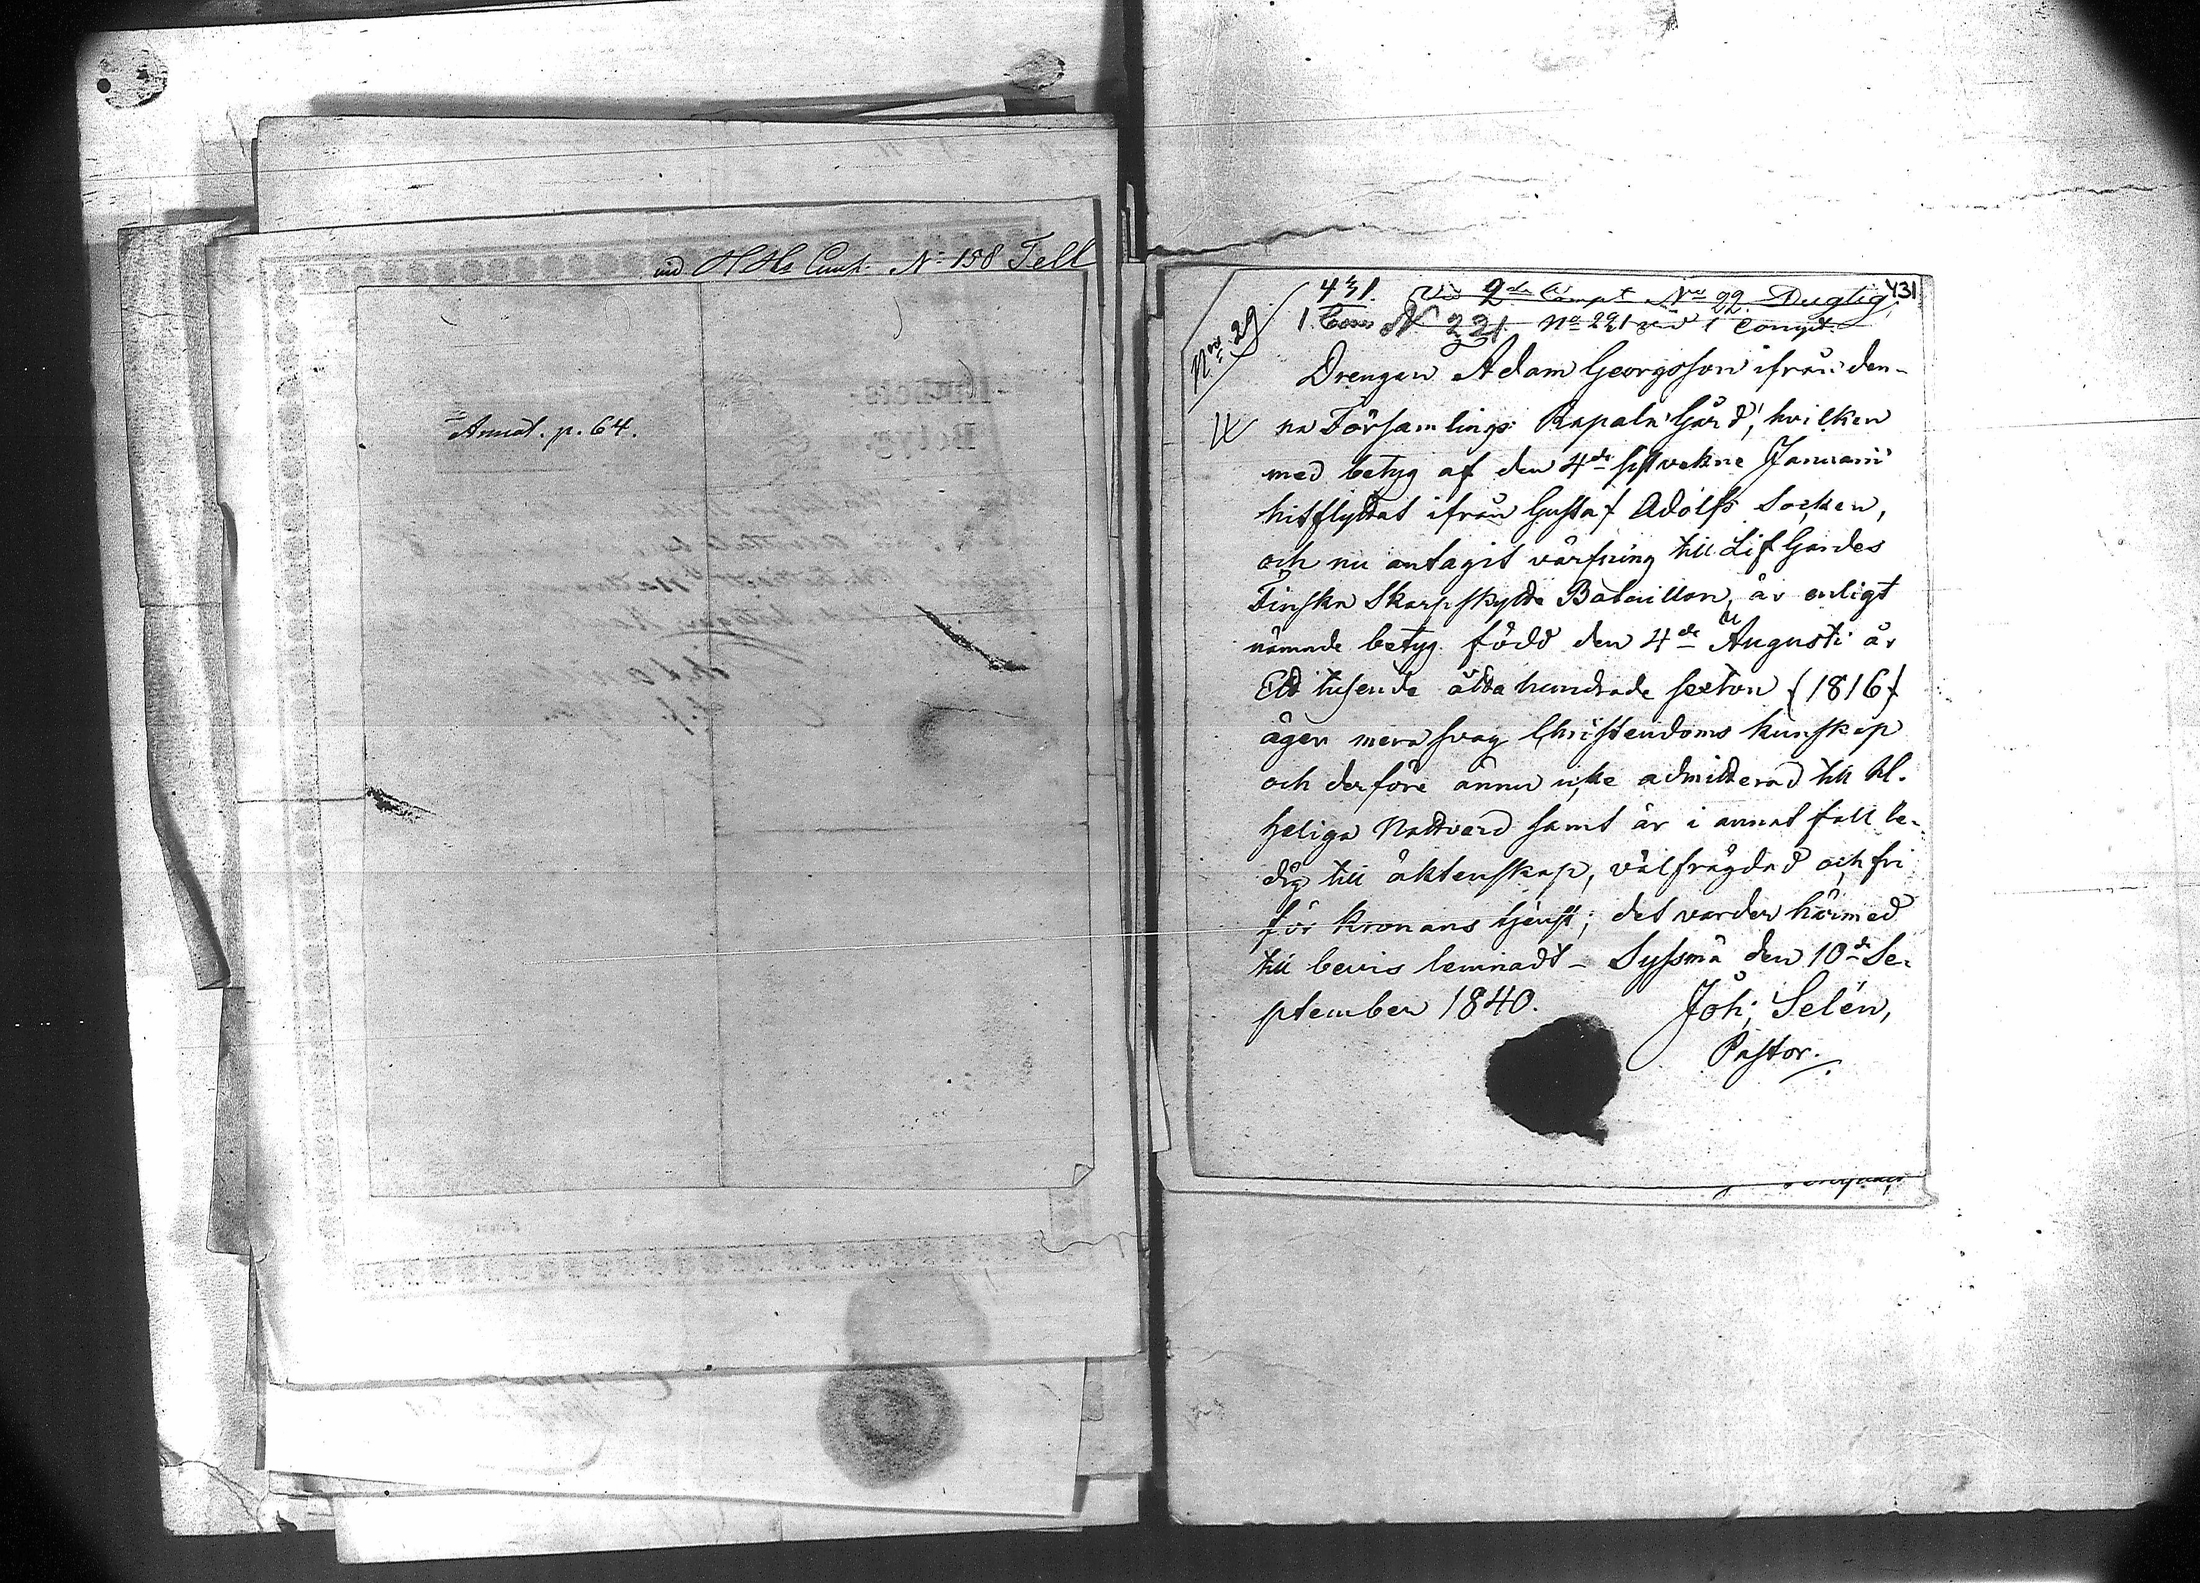 vid Comp. N: 158 Tell
Annot. p. 64.
431
431. Vid 2de Compt No 22. Duglig.
1. Com N 221. No 221 vid 1 Compt.
No 29
Drengen Adam Georgsson ifrån den-
na Församlings Rapala Gård, hvilken
med betyg af den 4de sistvekne Januarii
hitflyttat ifrån Gustaf Adolfs Socken,
och nu antagit värfning till Lif Gardes
Finska Skarpskytte Bataillon, är enligt
nämnde betyg född den 4de Augusti år
Ett tusende åtta hundrade sexton (1816)
äger mera svag Christendoms kunskap
och derföre ännu icke admitterad till H.
heliga Nattvard samt är i annat fall le-
dig till äktenskap, välfrägdad och fri
för Kronans tjenst; det varder härmed
till bevis lemnadt - Syssmä den 10de Se-
ptember 1840. Joh; Selén,
Pastor.